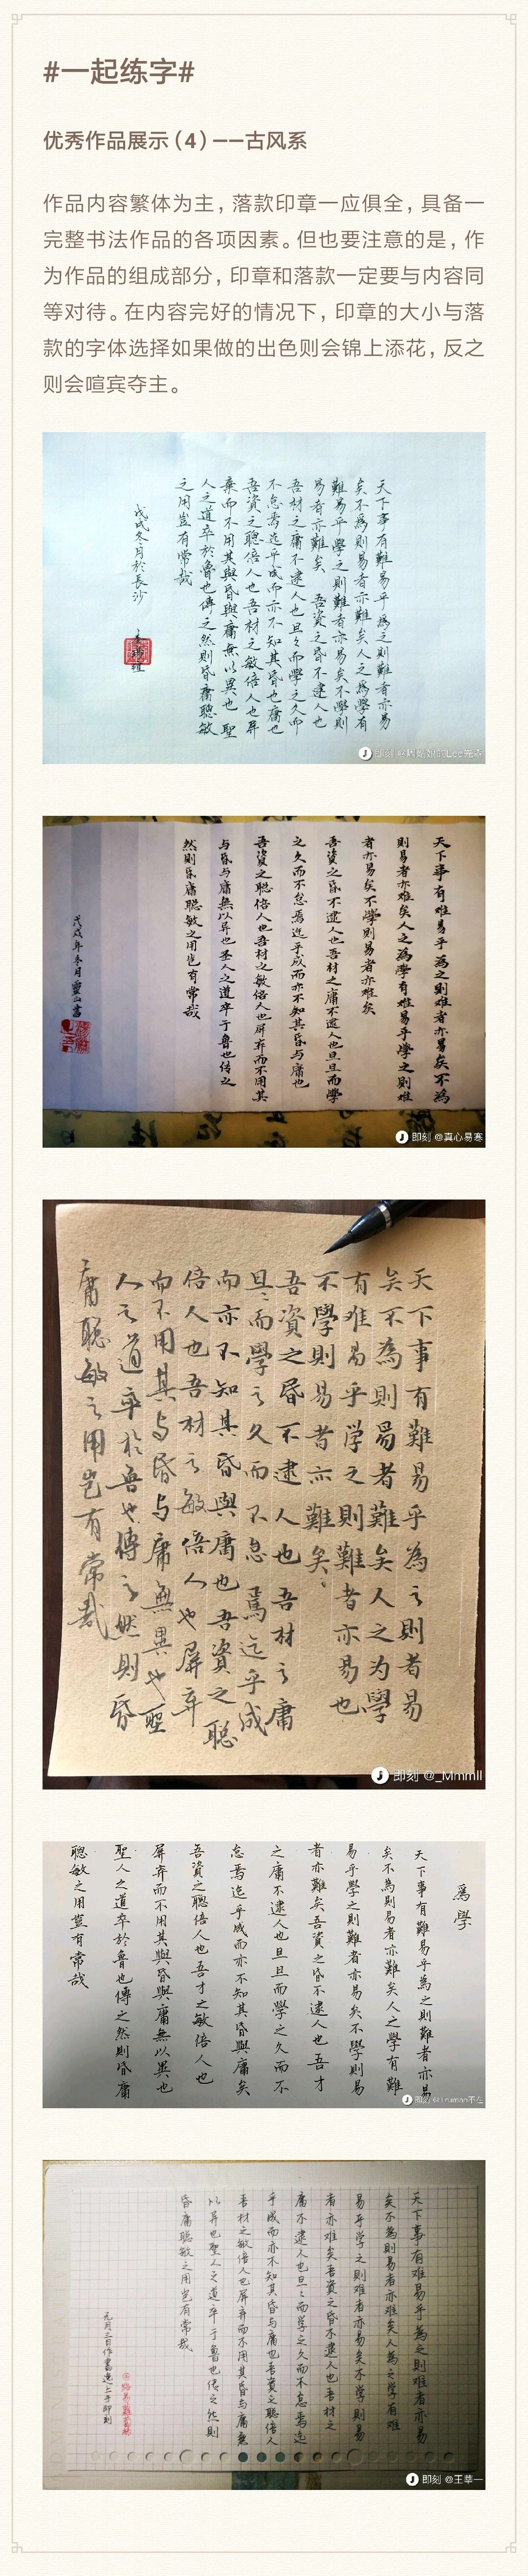 #一起练字#
优秀作品展示（4）——古风系
作品内容繁体为主，落款印章一应俱全，具备一
完整书法作品的各项因素。但也要注意的是，作
为作品的组成部分，印章和落款一定要与内容同
等对待。在内容完好的情况下，印章的大小与落
款的字体选择如果做的出色则会锦上添花，反之
则会喧宾夺主。
天下事有難易乎為之則難者亦易
矣不為則易者亦難矣人之為學有
難易乎學之則難者亦易矣不學則
易者亦難矣 吾資之昏不逮人也
吾材之庸不逮人也旦々而學之久而
不怠焉迄乎成而亦不知其昏也庸也
吾資之聰倍人也吾材之敏倍人也屏
棄而不用其與昏與庸無以異也 聖
人之道卒於魯也傳之然則昏庸聰敏
之用豈有常哉
戊戌冬月於長沙
天下事有难易乎為之則难者亦易矣不為
則易者亦难矣人之為學有难易乎學之則难
者亦易矣不學則易者亦难矣
吾資之昏不逮人也吾材之庸不逮人也旦旦而學
之久而不怠焉迄乎成而亦不知其昏与庸也
吾資之聪倍人也吾材之敏倍人也屏弃而不用其
与昏与庸無以异也圣人之道卒于魯也传之
然則昏庸聪敏之用岂有常哉
戊戌年冬月靈山書
即刻 @真心易寒
天下事有難易乎為之則者易
矣不為則易者難矣人之为學
有难易乎学之則難者亦易也
不學則易者亦難矣
吾資之昏不逮人也吾材之庸
旦而學之久而不怠焉迄乎成
而亦不知其昏與庸也吾資之聪
倍人也吾材之敏倍人也屏弃
而不用其与昏与庸無異也聖
人之道卒於鲁也傳之然則昏
庸聪敏之用岂有常哉
即刻 @_Mmmll
為學
天下事有難易乎為之則難者亦易
矣不為則易者亦難矣人之學有難
易乎學之則難者亦易矣不學則易
者亦難矣吾資之昏不逮人也吾才
之庸不逮人也旦旦而學之久而不
怠焉迄乎成而亦不知其昏與庸矣
吾資之聰倍人也吾才之敏倍人也
屏弃而不用其與昏與庸無以異也
聖人之道卒於魯也傳之然則昏庸
聰敏之用豈有常哉
天下事有难易乎為之則难者亦易
矣不為則易者亦难矣人為之学有难
易乎学之則难者亦易矣不学則易
者亦难矣吾資之昏不逮人也吾材之
庸不逮人也旦々而学之久而不怠焉迄
乎成而亦不知其昏与庸也吾資之聪倍人
吾材之敏倍人也屏弃而不用其昏与庸無
以异也聖人之道卒于魯也传之然則
昏庸聪敏之用岂有常哉
元月三日作書速上于即刻
即刻 @王莘一